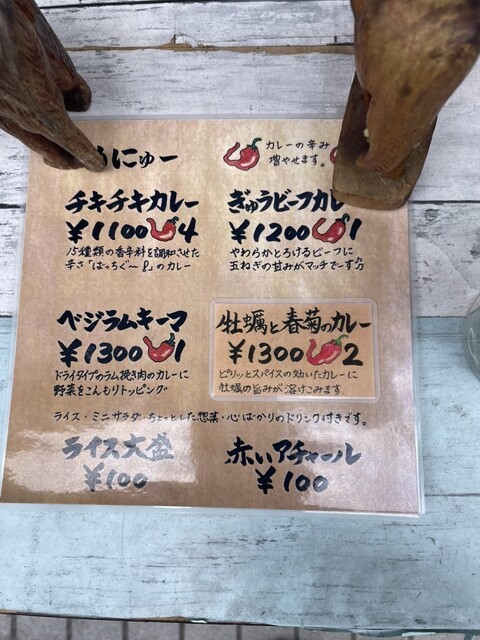 にゅー
カレーの辛み
増やせます。
チキチキカレー
¥1100 4
15種類の香辛料を調和させた
辛さ「ばっちぐ〜!」のカレー
ぎゅうビーフカレ
¥1200 1
やわらかとろけるビーフに
玉ねぎの甘みがマッチでーす
ベジラムキーマ
¥1300 1
ドライタイプのラム挽き肉のカレーに
野菜をこんもりトッピング
牡蠣と春菊のカレー
¥1300 2
ピリッとスパイスの効いたカレーに
牡蠣の旨みが溶けこみます。
ライス・ミニサラダ・ちょっとした惣菜・心ばかりのドリンク付きです。
ライス大盛
¥100
赤いアチャール
¥100